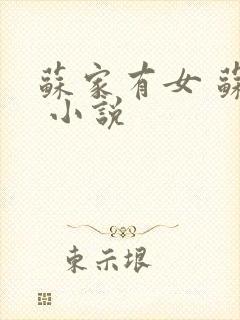 蘇家有女 蘇
小說
東示垠